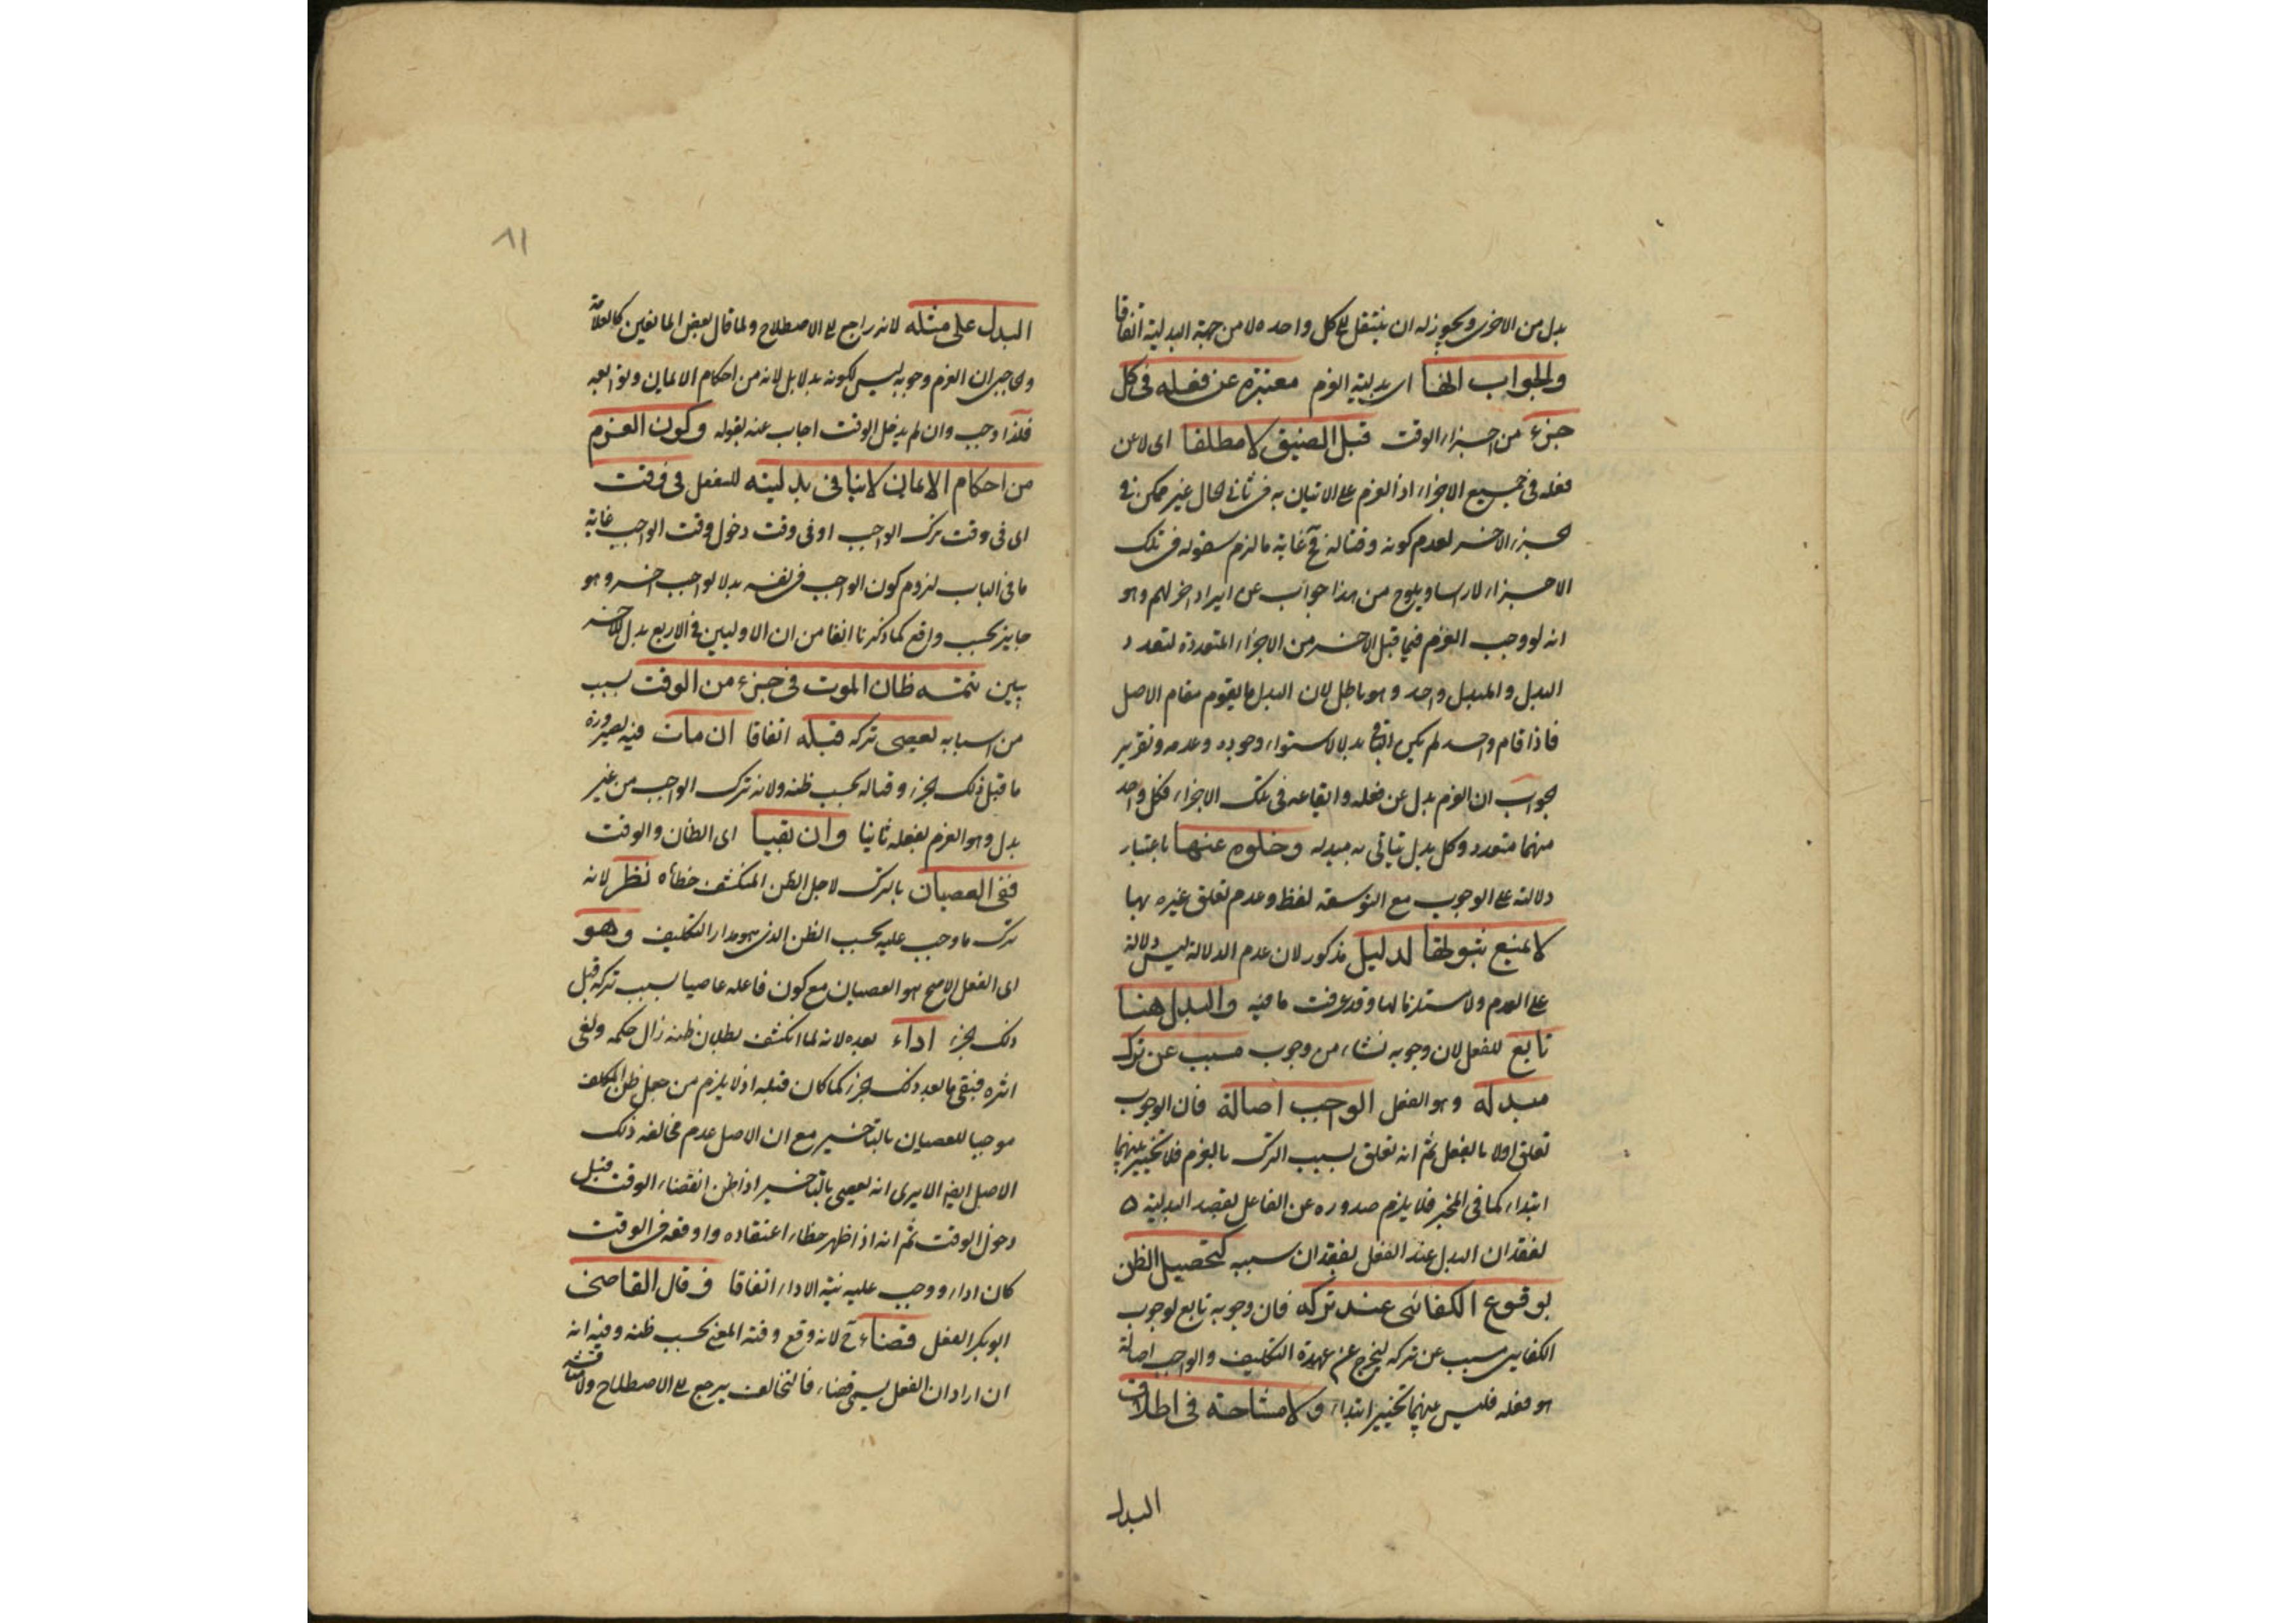 بدل من الاخرى ويجوز له ان ينتقل الى كل واحد لا من جهة البدلية اتفاقا
والجواب انها اى بدلية العزم معتبرة عن فعله فى كل
جزء من اجزاء الوقت قبل الضيق لا مطلقا اى لا عن
فعله فى جميع الاجزاء اذ العزم على الاتيان به فى ثانى الحال غير ممكن فى
الجزء الاخر لعدم كونه وقتا له فح غاية ما لزم سقوطه فى تلك
الاجزاء لا راسا ويلوح من هذا جواب عن ايراد اخر لهم وهو
انه لو وجب العزم فيما قبل الاخر من الاجزاء المتعددة لتعدد
البدل والمبدل واحد وهو باطل لان البدل ما يقوم مقام الاصل
فاذا قام واحد لم يكن الباقى بدلا لاستواء وجوده وعدمه وتقرير
الجواب ان العزم بدل عن فعله وايقاعه فى تلك الاجزاء فكل واحد
منهما متعدد وكل بدل يتاتى به مبدله وخلوه عنها باعتبار
دلالته على الوجوب مع التوسعة لفظا وعدم تعلق غيره بها
لا يمنع ثبوتها لدليل مذكور لان عدم الدلالة ليس دلالة
على العدم ولا مستلزما لها وقد عرفت ما فيه والبدل هنا
تابع للفعل لان وجوبه نشاء من وجوب مسبب عن ترك
مبدله وهو الفعل الواجب اصالة فان الوجوب
تعلق اولا بالفعل ثم انه تعلق بسبب الترك بالعزم فلا تخيير بينهما
ابتداء كما فى المخير فلا يلزم صدوره عن الفاعل بقصد البدلية
لفقدان البدل عند الفعل لفقدان سببه كتحصيل الظن
بوقوع الكفائى عند تركه فان وجوبه تابع لوجوب
الكفايى مسبب عن تركه ليخرج عن عهدة التكليف والواجب اصالة
هو فعله فليس بينهما تخيير ابتداء ولا مشاحة فى اطلاق
البدل
٨١
البدل على مثله لانه راجع الى الاصطلاح ولما قال بعض المانعين كالعلامة
والحاجبى ان العزم وجوبه ليس لكونه بدلا بل لانه من احكام الايمان وتوابعه
فلذا وجب وان لم يدخل الوقت اجاب عنه بقوله وكون العزم
من احكام الايمان لا ينافى بدليته للفعل فى وقت
اى فى وقت ترك الواجب او فى وقت دخول وقت الواجب غاية
ما فى الباب لزوم كون الواجب فى نفسه بدلا لواجب اخر وهو
جايز بحسب واقع كما ذكرنا انفا من ان الاوليين فى الاربع بدل للاخر
بين تتمة ظان الموت فى جزء من الوقت بسبب
من اسبابه يعصى تركه قبله اتفاقا ان مات فيه لصيرورة
ما قبل ذلك الجزء وقتا له بحسب ظنه ولانه ترك الواجب من غير
بدل وهو العزم بفعله ثانيا وان بقيا اى الظان والوقت
ففى العصيان بالترك لاجل الظن المنكشف خطأه نظر لانه
ترك ما وجب عليه بحسب الظن الذى هو مدار التكليف وهو
اى الفعل الاصح هو العصيان مع كون فاعله عاصيا بسبب تركه قبل
ذلك الجزء اداء بعده لانه لما انكشف بطلان ظنه زال حكمه ولغى
اثره فبقى ما بعد ذلك الجزء كما كان قبله اذ لا يلزم من جعل ظن المكلف
موجبا للعصيان بالتاخير مع ان الاصل عدم مخالفة ذلك
الاصل ايضا الا يرى انه يعصى بالتاخير اذا ظن انقضاء الوقت قبل
دخول الوقت ثم انه اذا ظهر خطاء اعتقاده واوقعه فى الوقت
كان اداء ووجب عليه نية الاداء اتفاقا وقال القاضى
ابو بكر الفعل قضاء ح لانه وقع وقته المعين بحسب ظنه وفيه انه
ان اراد ان الفعل يسمى قضاء فالتخالف يرجع الى الاصطلاح ولا مناقشة